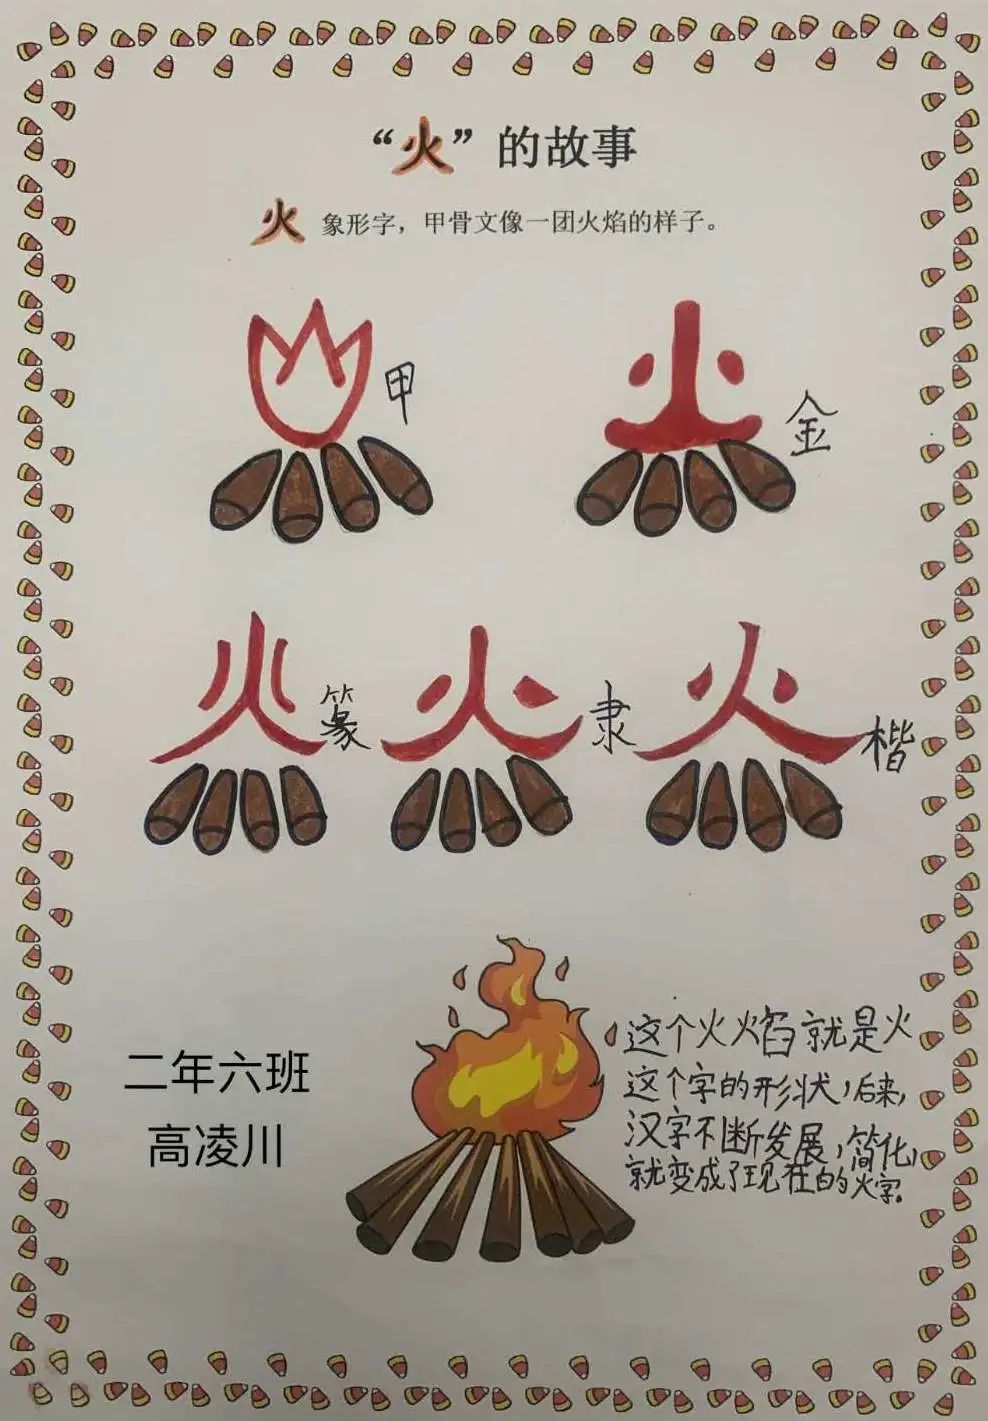 “火”的故事
火 象形字，甲骨文像一团火焰的样子。
甲
金
火
篆
火
隶
火
楷
二年六班
高凌川
这个火焰就是火
这个字的形状，后来，
汉字不断发展，简化，
就变成了现在的火字。